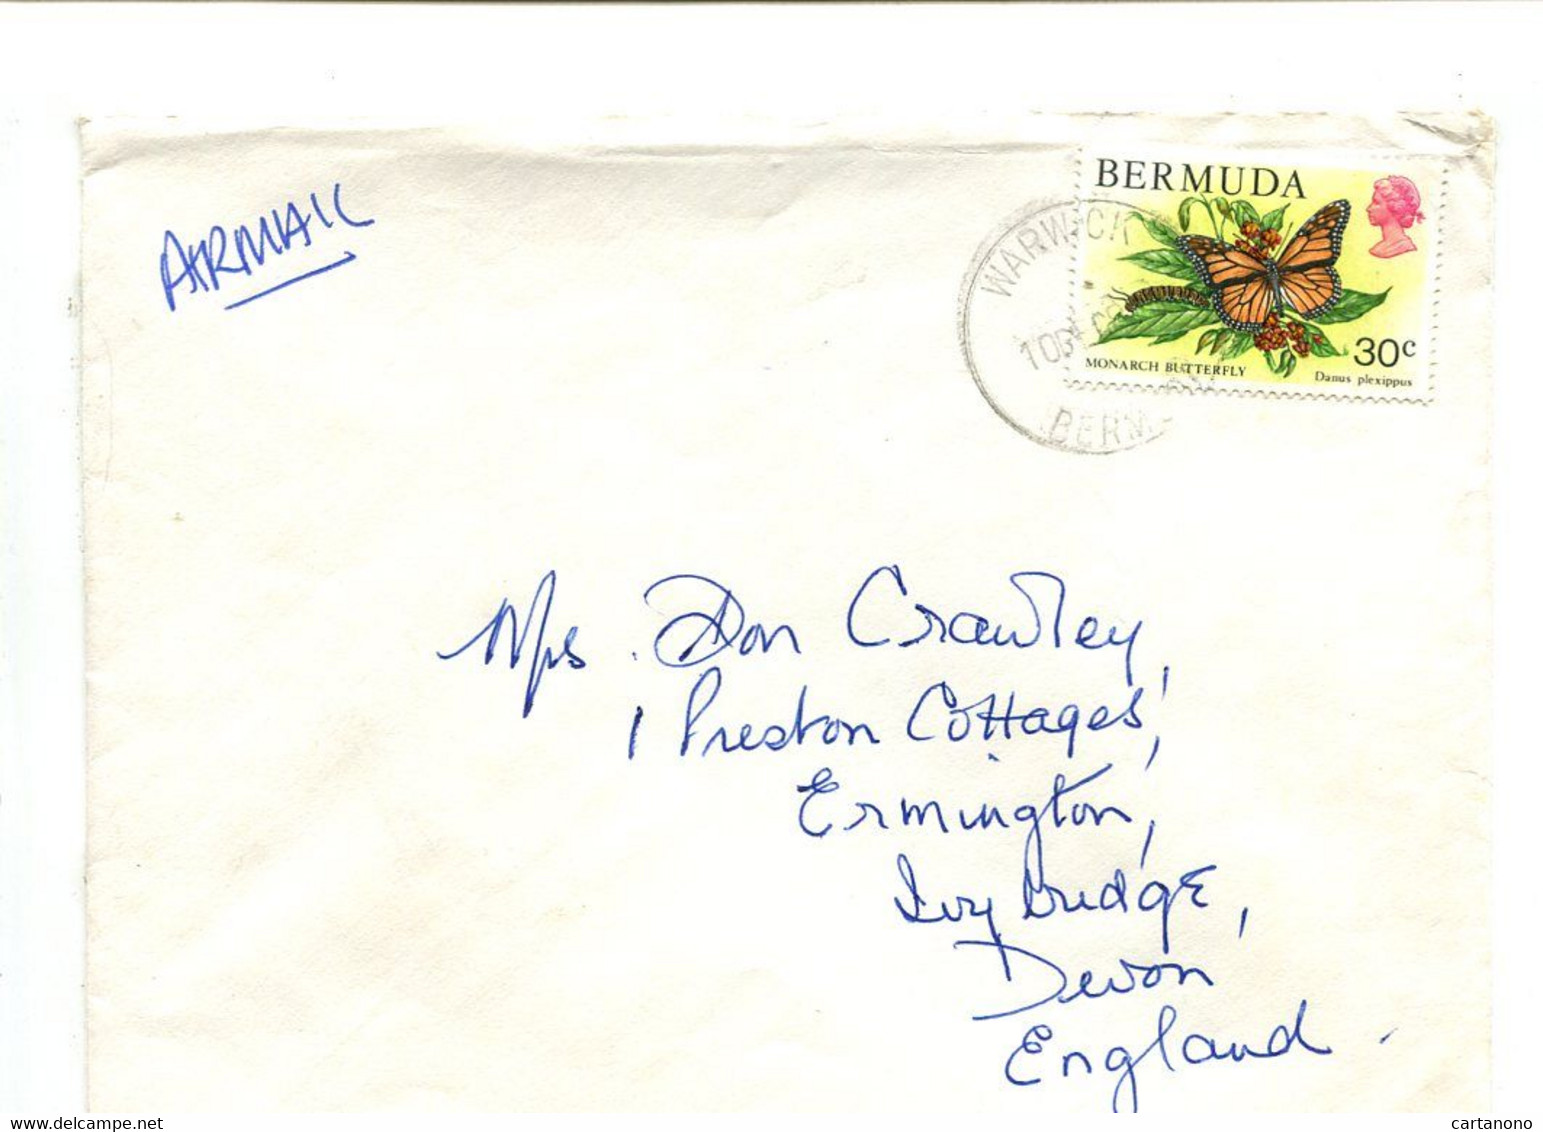 AIRMAIL
BERMUDA
WARWICK
30c
MONARCH BUTTERFLY
Danus plexippus
BERM
Mrs. Don Crawley,
1 Preston Cottages,
Ermington,
Ivybridge,
Devon
England.
delcampe.net
cartanono